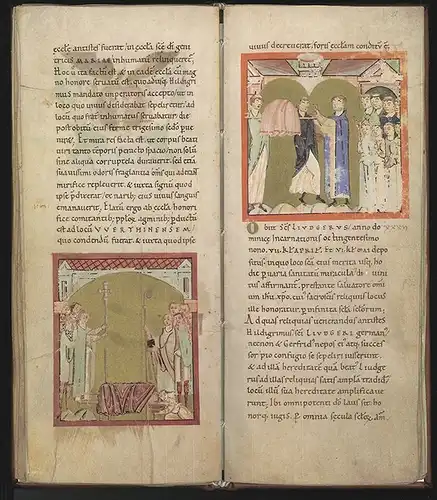 eccłe antistes fuerat, in eccła scę dī geni
tricis MARIAE inhumatū relinquerēt,
Hoc ū ita factū est, & in eadē eccła cū mag
no honore servatū est, quo adusq; Hildigri
mus mandato imperatoris accepto, ut in
loco quo vivus desiderabat sepeliretur, ad
locū quo frat inhumatus servabatur, die
post obitū eius ferme trigesimo sedo per
venire. Et mira res facta est, ut corpus beati
viri tanto teporis peracto spacio, non solū
sine aliqua corruptela duraverit, sed etiā
sua vissimi odoris fraglantia oms qui aderant
mirifice repleverit, & iuxta signū quod
ipse pdixerat, ex narib; eius vivus sanguis
emanaverit. Elatū ergo ab eccła honori
fice comitantib; pploꝝ agminib; pductū
est ad locū VVERTHINENSEM,
quo condendū fuerat, & iuxta quod ipse
vivus decreverat, foris eccłam conditū ē.
Obiit scs LIUDGERUS, anno do
minicę incarnationis octingentesimo
nono. VII. KL APRIL. Et VI. KL mai depo
situs, in quo loco scm̄ eius merita usq; ho
die p varia sanitatū miracula di vini
tus affirmant. prestante salvatore omi
um ihu xpo. cui sacrosctis reliquiis locus
ille honoratur, p infinita scła scłorum;
Ad quas reliquias venerandus antistes
Hildigrimus sci LIUDGERI german
necnon & Gerfrid nepos ei atq; succes
sor pio confugio se sepeliri iusserunt.
& ad illa hereditate quā beat Liudger
us ad illas reliquias satis ampla tradidit,
locū illū sua hereditate amplificave
runt. Ibi omnipotenti dō laus sit. ho
norq; iugis. P omnia secula scłoꝝ. am̄